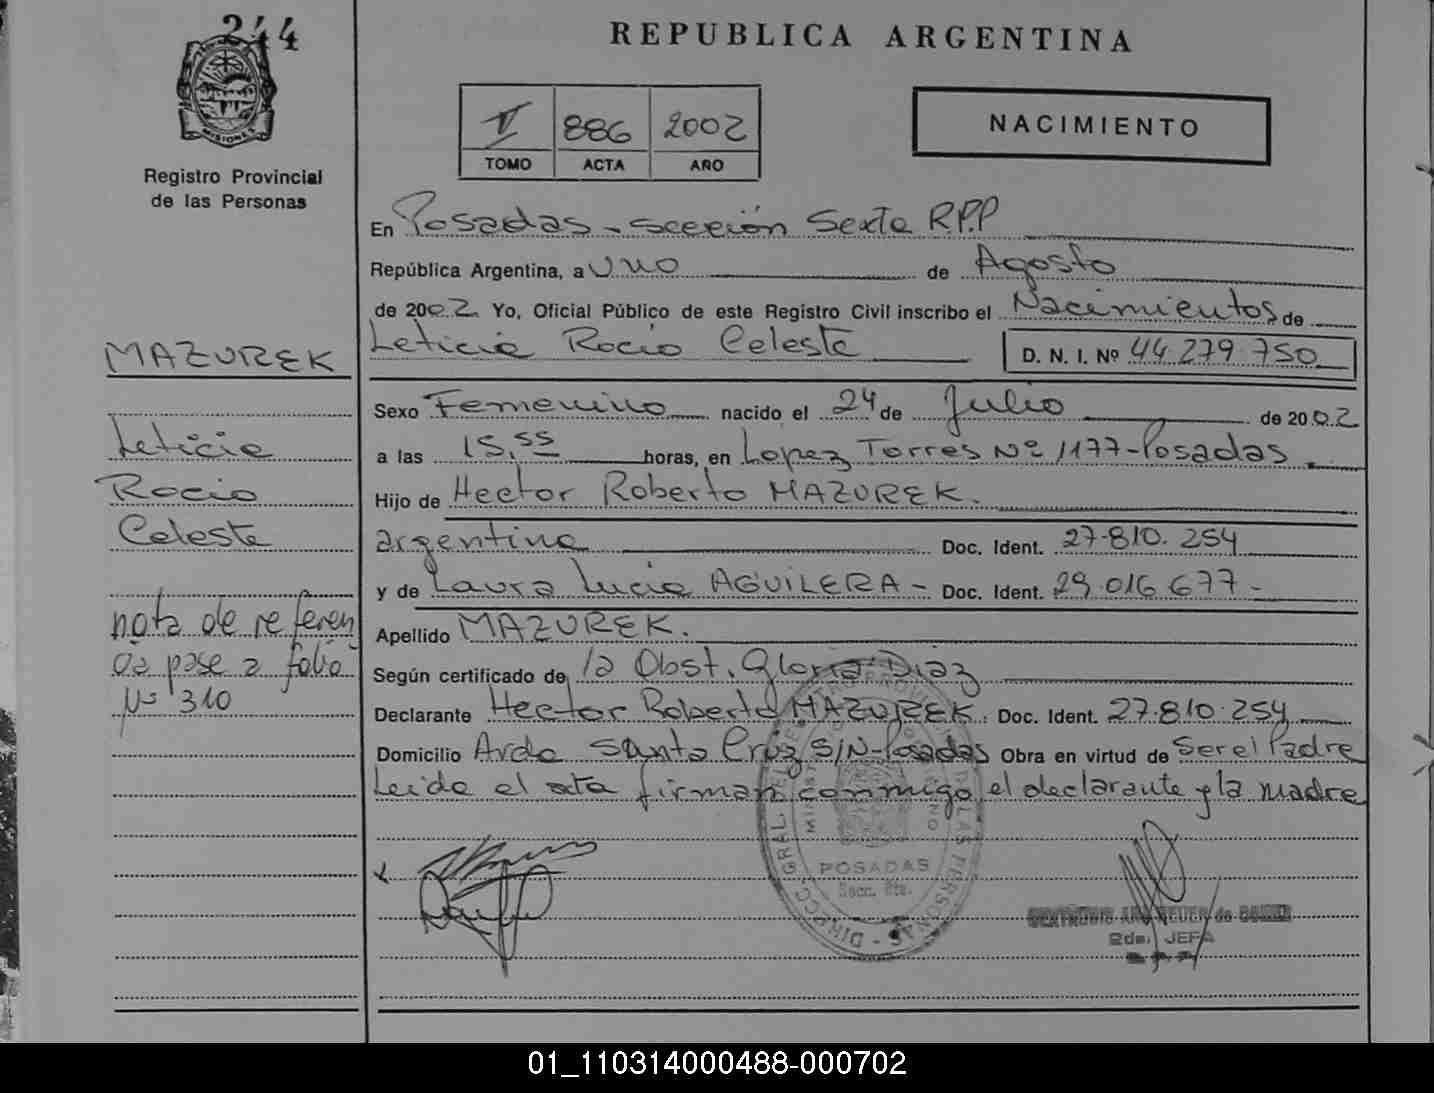 244
REPUBLICA ARGENTINA
MISIONES
Registro Provincial
de las Personas
II 886 2002
TOMO ACTA AÑO
NACIMIENTO
En Posadas - sección Sexta R.P.P
República Argentina, a uno de Agosto
de 2002 Yo, Oficial Público de este Registro Civil inscribo el Nacimientos de
Leticia Rocio Celeste D. N. I. Nº 44 279.750
Sexo Femenino nacido el 24 de Julio de 2002
a las 15,55 horas, en Lopez Torres Nº 1177-Posadas
Hijo de Hector Roberto MAZUREK.
argentina Doc. Ident. 27.810.254
y de Laura Lucia AGUILERA - Doc. Ident. 29.016.677 -
Apellido MAZUREK.
Según certificado de la Obst. Gloria Diaz
Declarante Hector Roberto MAZUREK. Doc. Ident. 27.810.254
Domicilio Avda Santa Cruz S/N-Posadas Obra en virtud de Ser el Padre
Leida el acta firman conmigo el declarante y la madre
MAZUREK
Leticia
Rocio
Celeste
nota de referen
cia pase a folio
Nº 310
DIRECC. GRAL. DEL REGISTRO PROVINCIAL DE LAS PERSONAS
POSADAS
Secc. 6ta.
2da. JEFA
01_110314000488-000702